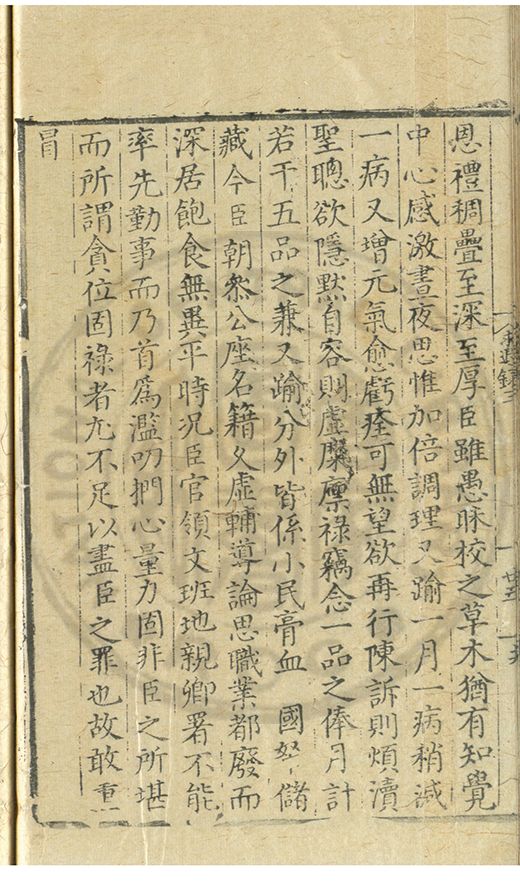 恩禮稠疊至深至厚臣雖愚昧校之草木猶有知覺
中心感激晝夜思惟加倍調理又踰一月一病稍減
一病又增元氣愈虧痊可無望欲再行陳訴則煩瀆
聖聰欲隱默自容則虛糜廩祿竊念一品之俸月計
若干五品之兼又踰分外皆係小民膏血 國帑儲
藏今臣朝叅公座名籍久虛輔導論思職業都廢而
深居飽食無異平時況臣官領文班地親卿署不能
率先勤事而乃首爲濫叨捫心量力固非臣之所堪
而所謂貪位固祿者尤不足以盡臣之罪也故敢重
冒